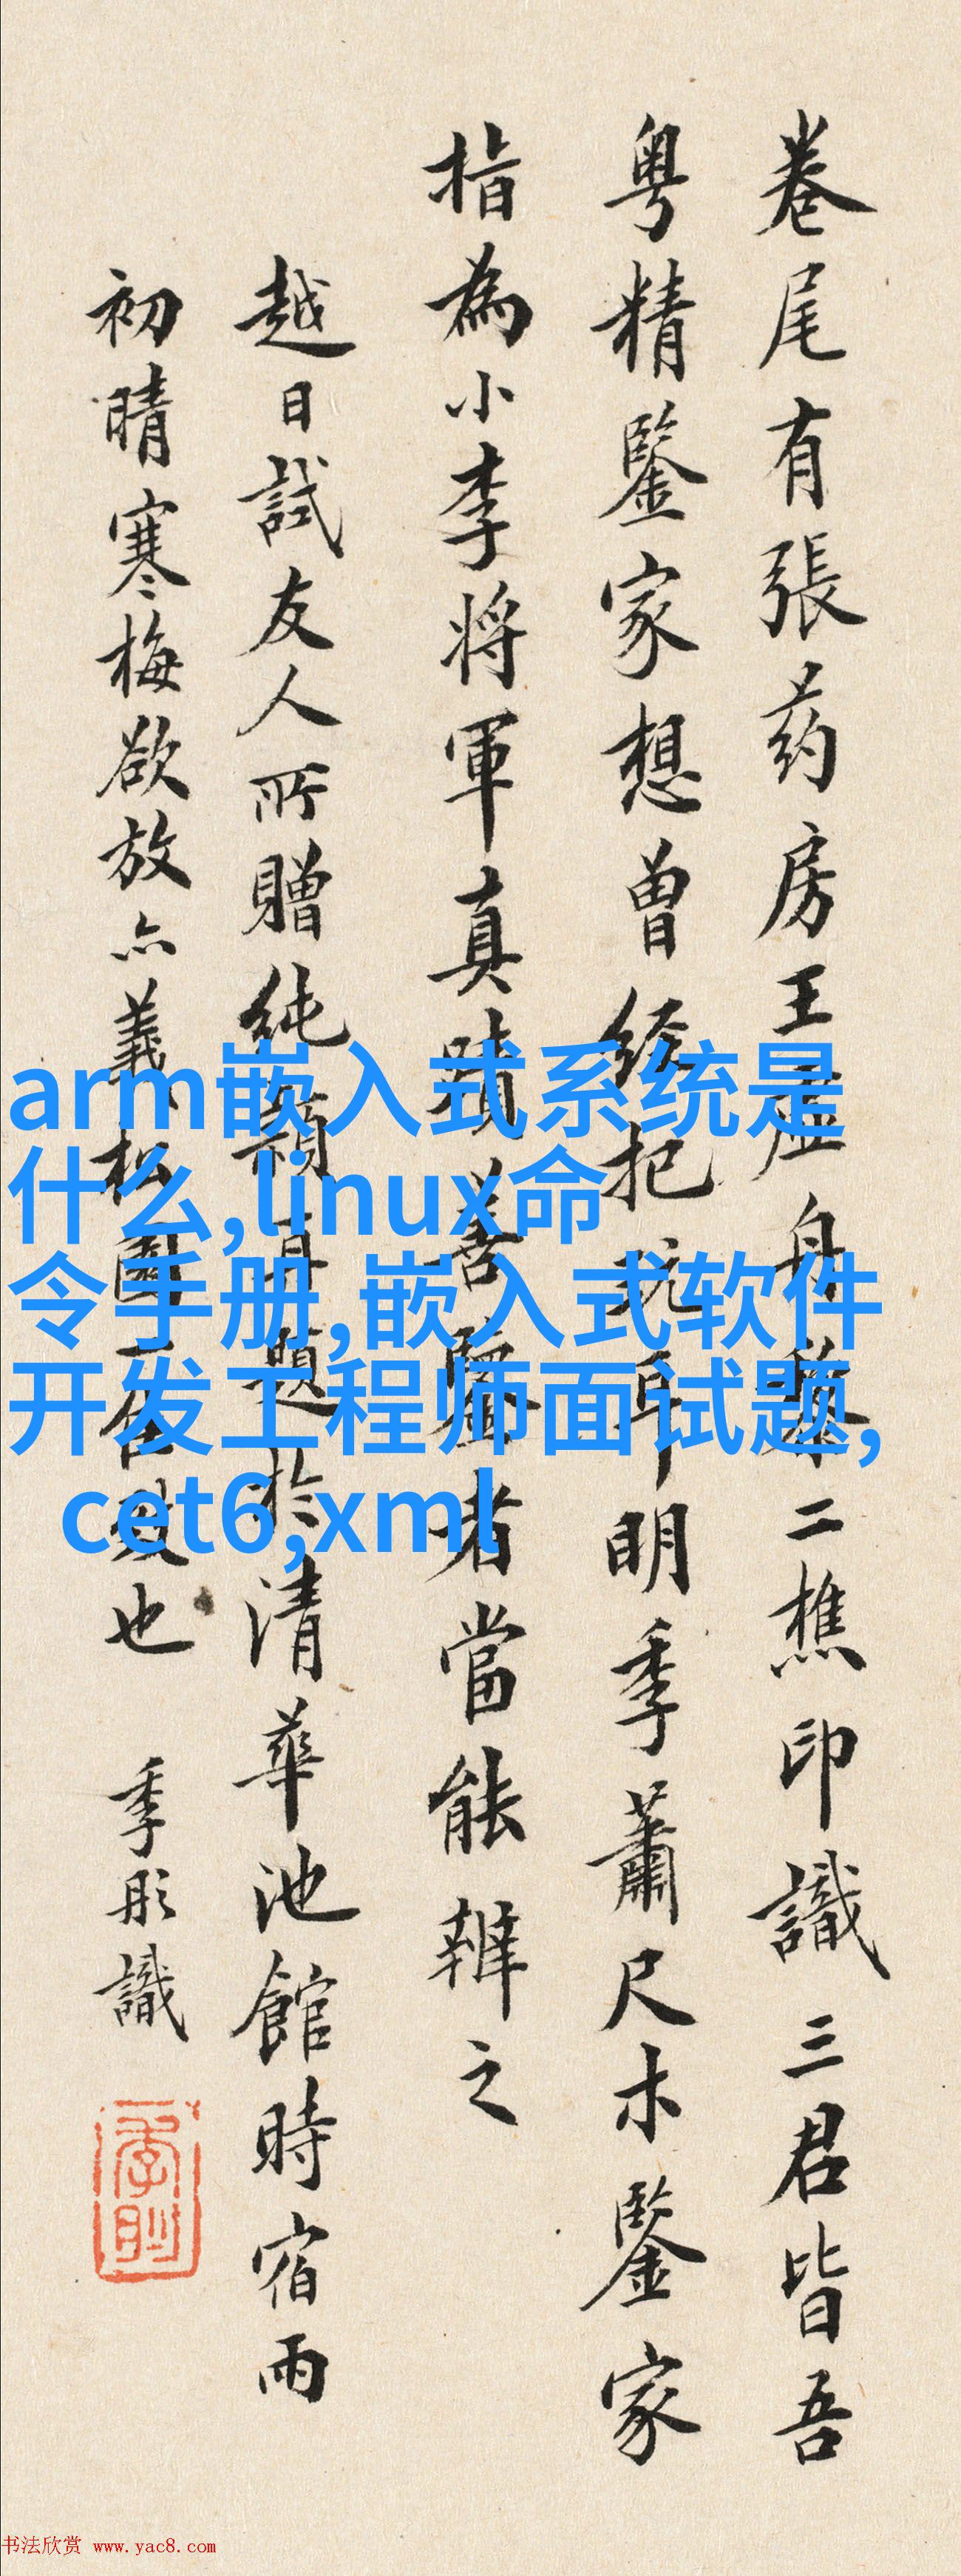 卷尾有張药房王虚舟黎二樵印識三君皆吾
粤精鑒家想曾經把玩耳明季蕭尺木鑒家
指為小李将軍真蹟善鑒者當能辨之
越日試友人所贈純穎再題於清華池館時宿雨
初晴寒梅欲放亦義松園一致也 季彤識
arm嵌入式系统是
什么,linux命
令手册,嵌入式软件
开发工程师面试题,
cet6,xml
书法欣赏 www.yac8.com